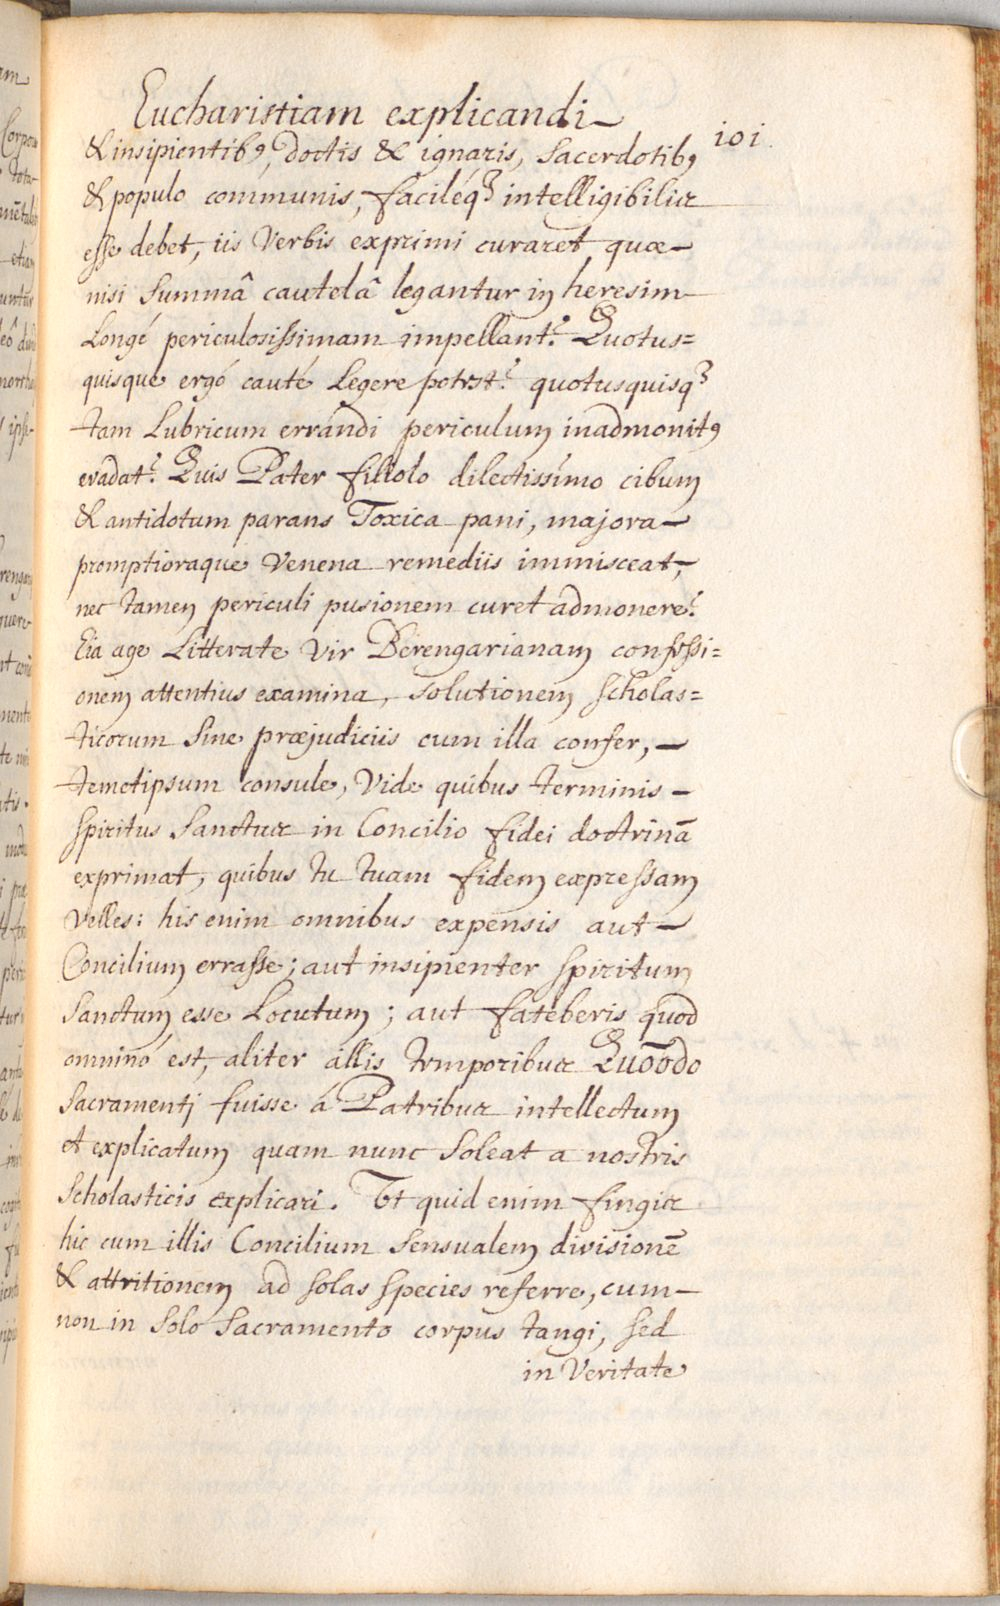 Eucharistiam explicandi
101.
& insipientibꝰ, doctis & ignaris, Sacerdotibꝰ
& populo communis, facileq́ꝫ intelligibilis
esse debet, iis Verbis exprimi curaret quæ
nisi Summâ cautelâ legantur in heresim
Longé periculosissimam impellant? Quotus=
quisque ergó cauté Legere potest? quotusquisqꝫ
tam Lubricum errandi periculum inadmonitꝰ
evadat? Quis Pater filiolo dilectissimo cibum
& antidotum parans Toxica pani, majora
promptioraque Venena remediis immisceat,
nec tamen periculi pusionem curet admonere?
Eia age Litterate Vir Berengarianam confessi=
onem attentius examina, solutionem scholas=
ticorum Sine præjudiciis cum illa confer,
temetipsum consule, Vide quibus terminis
Spiritus Sanctus in Concilio fidei doctrinā
exprimat, quibus tu tuam fidem expressam
Velles: his enim omnibus expensis aut
Concilium errasse; aut insipienter Spiritum
Sanctum esse Locutum; aut fateberis quod
omnino est, aliter illis temporibus Quōodo
Sacramenti fuisse á Patribus intellectum
et explicatum quam nunc Soleat a nostris
Scholasticis explicari. Et quid enim fingis
hic cum illis Concilium Sensualem divisionē
& attritionem ad solas species referre, cum
non in Solo Sacramento corpus tangi, sed
in Veritate